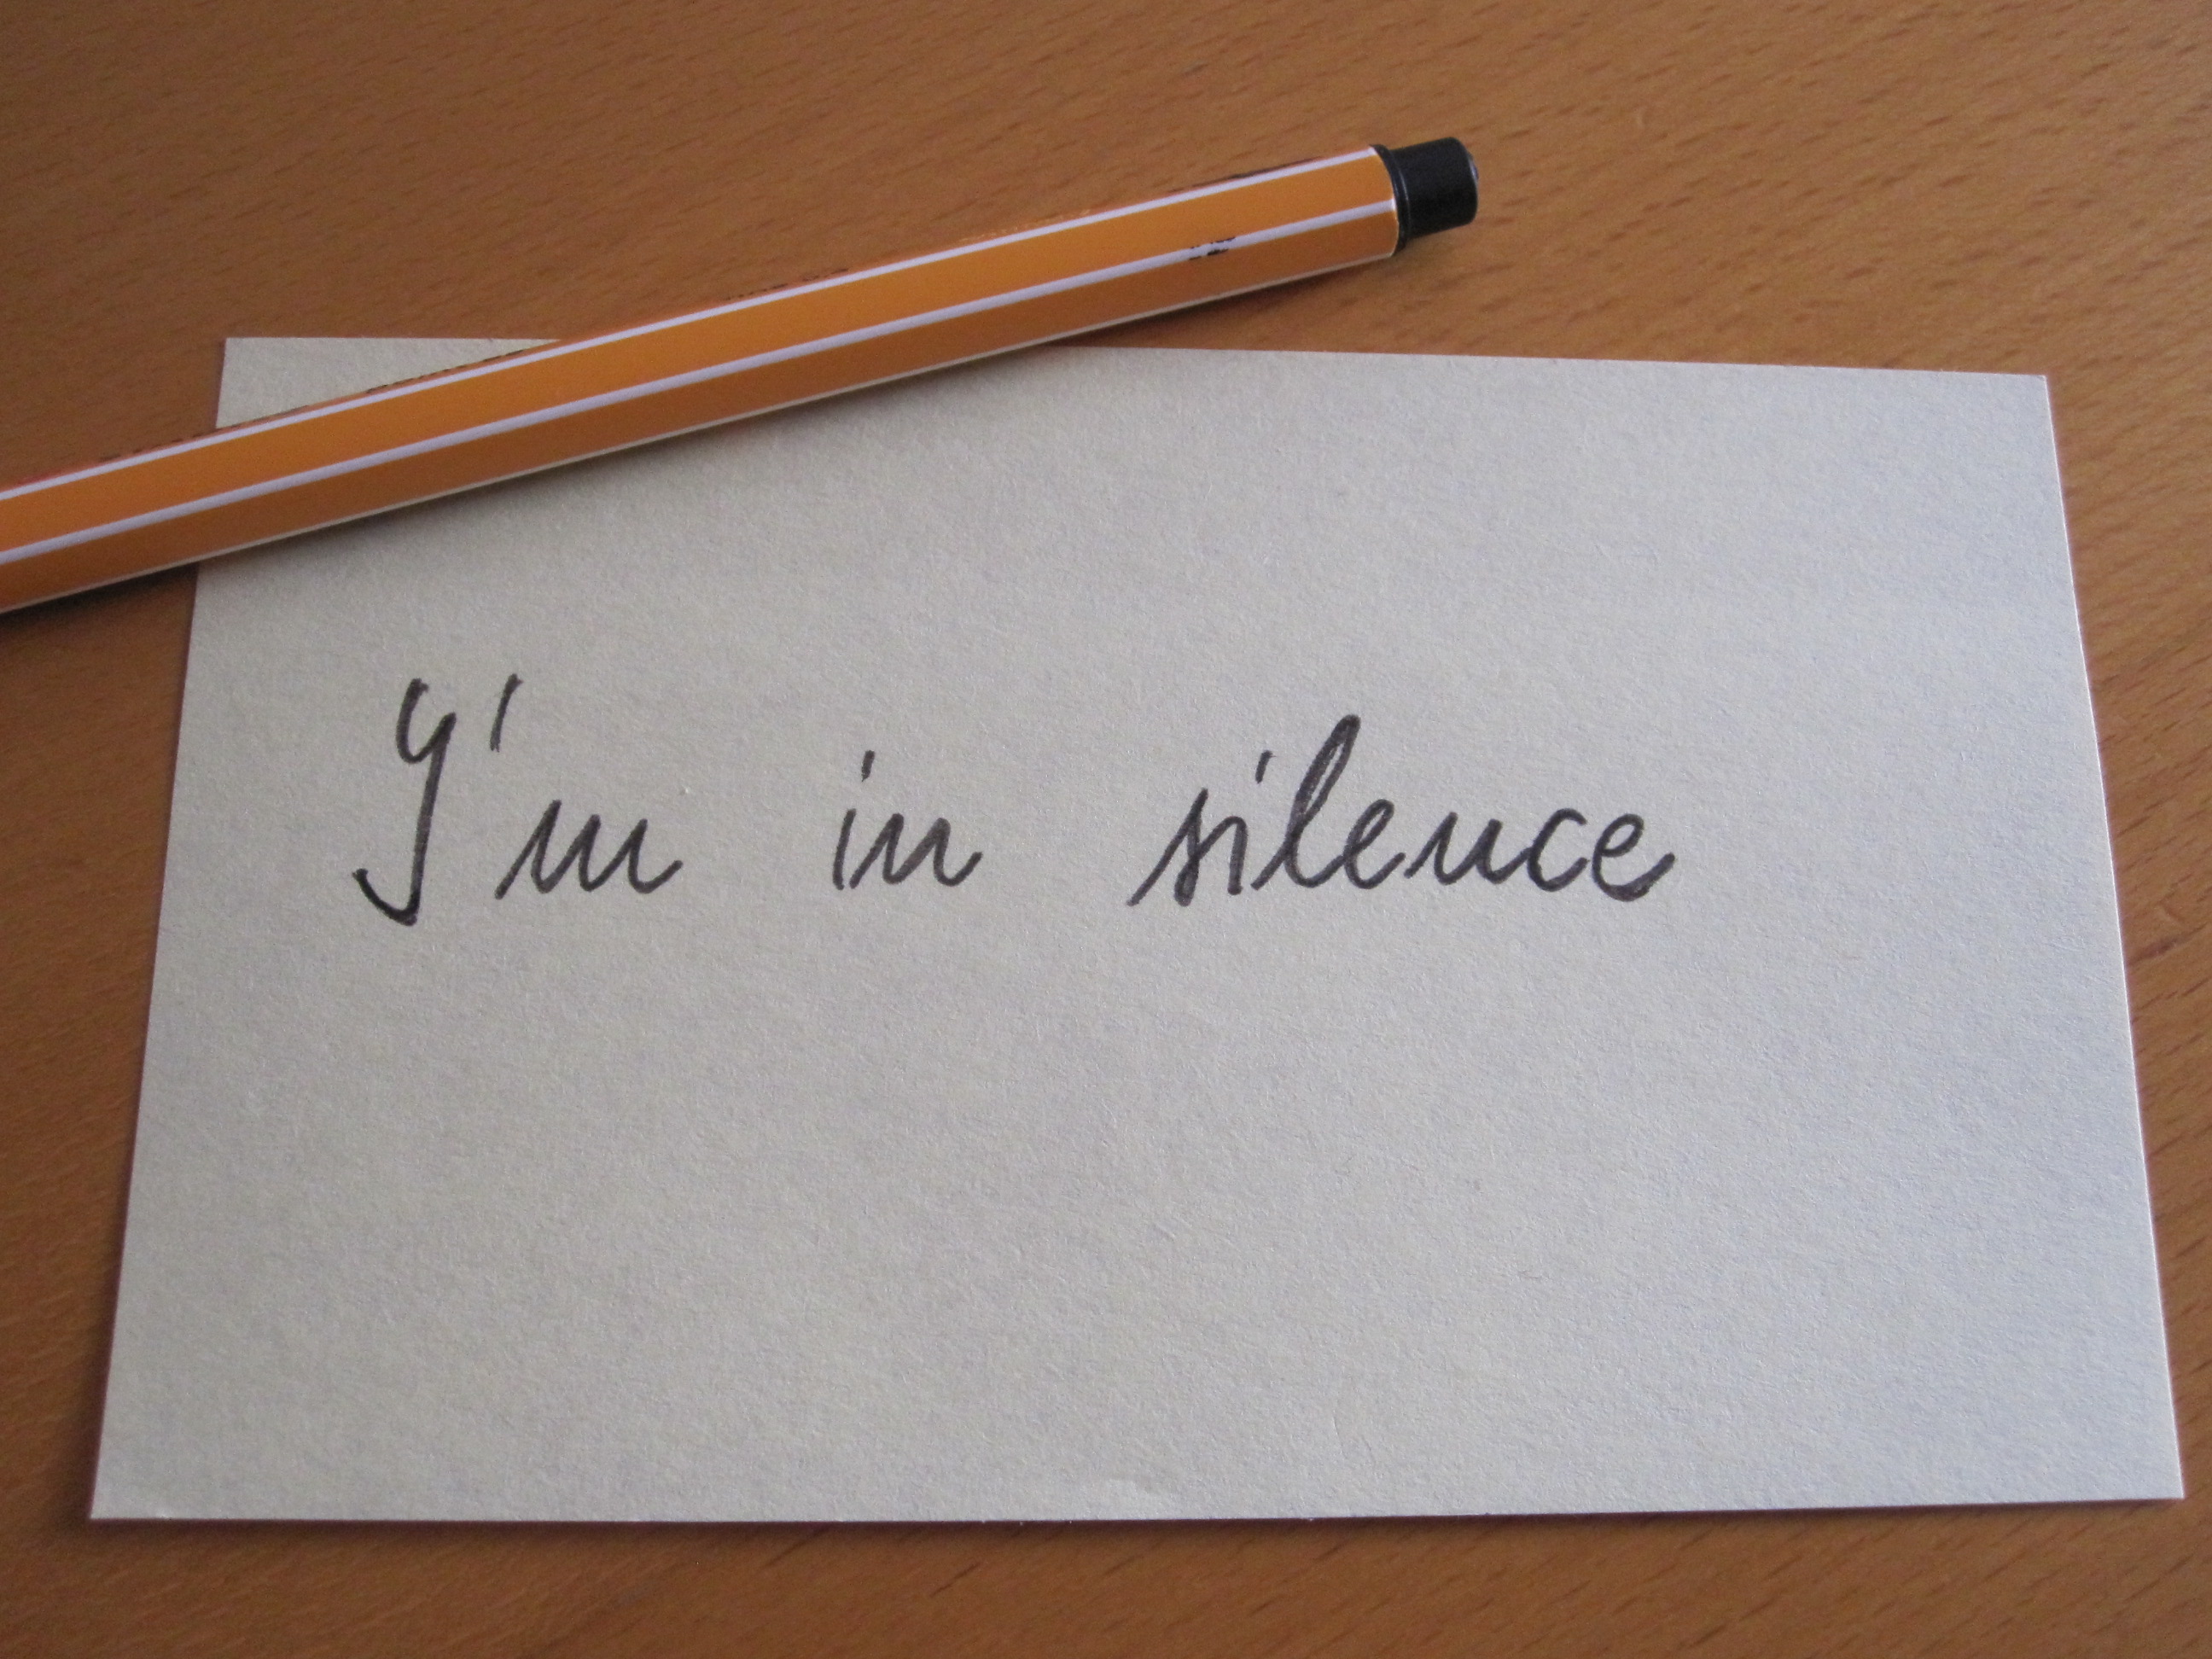 I'm in silence